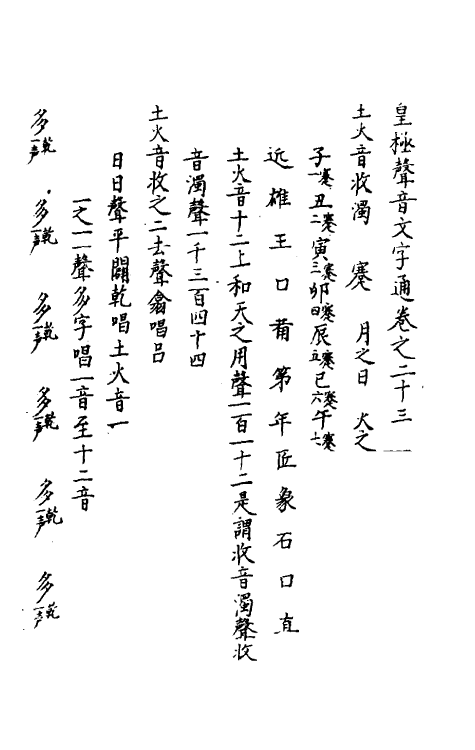 皇極聲音文字通卷之二十三
土火音收濁　蹇　月之日　火之
子一蹇丑二蹇寅三蹇卯四蹇辰五蹇巳六蹇午七蹇
近雄王口葡第年匠象石口直
土火音十二上和天之用聲一百一十二是謂收音濁聲收
音濁聲一千三百四十四
土火音收之二去聲翕唱呂
日日聲平闢乾唱土火音一
一之一聲多字唱一音至十二音
多乾一声　多乾一声　多乾一声　多乾一声　多乾一声　多乾一声